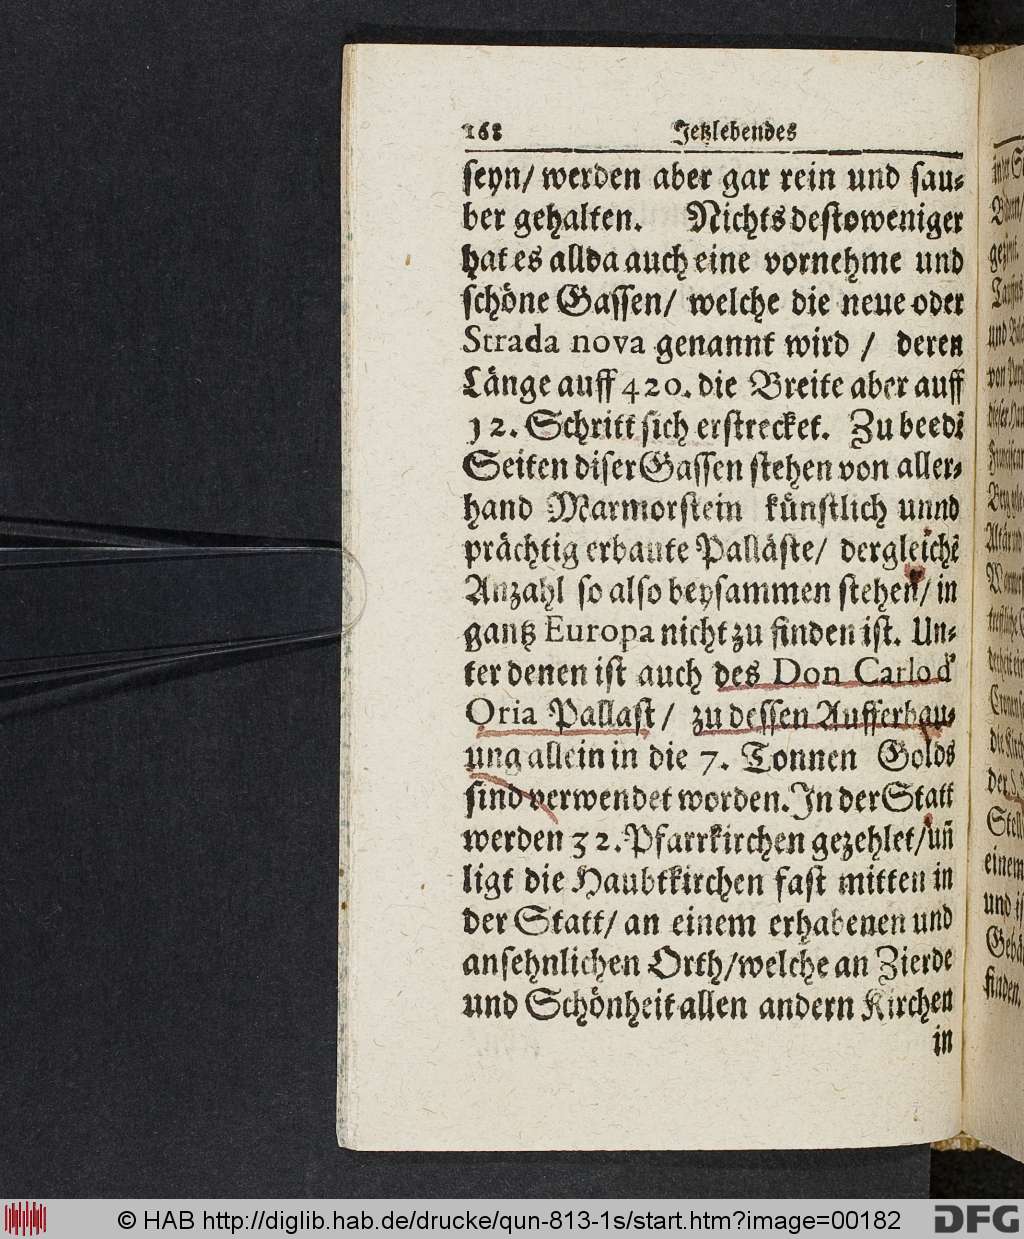 168 Jetzlebendes
seyn/ werden aber gar rein und sau-
ber gehalten. Nichts destoweniger
hat es allda auch eine vornehme und
schöne Gassen/ welche die neue oder
Strada nova genannt wird / deren
Länge auff 420. die Breite aber auff
12. Schritt sich erstrecket. Zu beedẽ
Seiten diser Gassen stehen von aller-
hand Marmorstein künstlich unnd
prächtig erbaute Palläste/ dergleichẽ
Anzahl so also beysammen stehen/ in
gantz Europa nicht zu finden ist. Un-
ter denen ist auch des Don Carlo d'
Oria Pallast/ zu dessen Aufferbau-
ung allein in die 7. Tonnen Golds
sind verwendet worden. In der Statt
werden 32. Pfarrkirchen gezehlet/ uñ
ligt die Haubtkirchen fast mitten in
der Statt/ an einem erhabenen und
ansehnlichen Orth/ welche an Zierde
und Schönheit allen andern Kirchen
in
© HAB http://diglib.hab.de/drucke/qun-813-1s/start.htm?image=00182 DFG